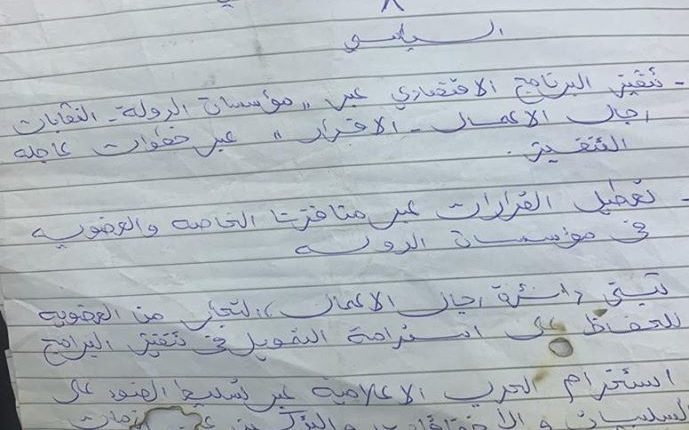 ٨
السياسي
- تنفيذ البرنامج الاقتصادي عبر "مؤسسات الدولة - النقابات
رجال الاعمال - الافراد" عبر خطوات عاجله
التنفيذ.
- تعطيل القرارات عبر منافذنا الخاصه والعضويه
في مؤسسات الدوله
تبني دائرة رجال الاعمال من العضويه
للحفاظ على استدامة التمويل في تنفيذ البرامج
استخدام الحرب الاعلامية عبر تسليط الضوء على
السلبيات و الأخفاقات والتركيز